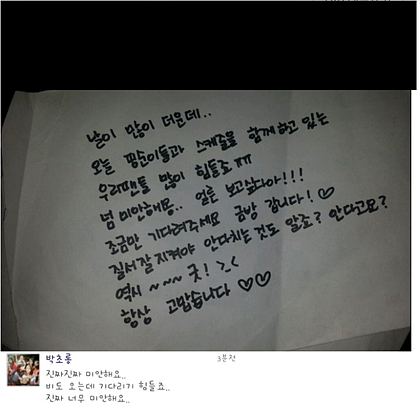 날이 많이 더운데..
오늘 핑순이들과 스케줄을 함께하고 있는
우리팬들 많이 힘들죠ㅠㅠ
넘 미안해용.. 얼른 보고싶다아!!!
조금만 기다려주세요 금방 갑니다!♡
질서잘지켜야 안다치는것도 알죠? 안다고요?
역시 ~~~ 굿! >.<
항상 고맙습니다 ♡♡
박초롱 3분전
진짜진짜 미안해요..
비도 오는데 기다리기 힘들죠..
진짜 너무 미안해요..